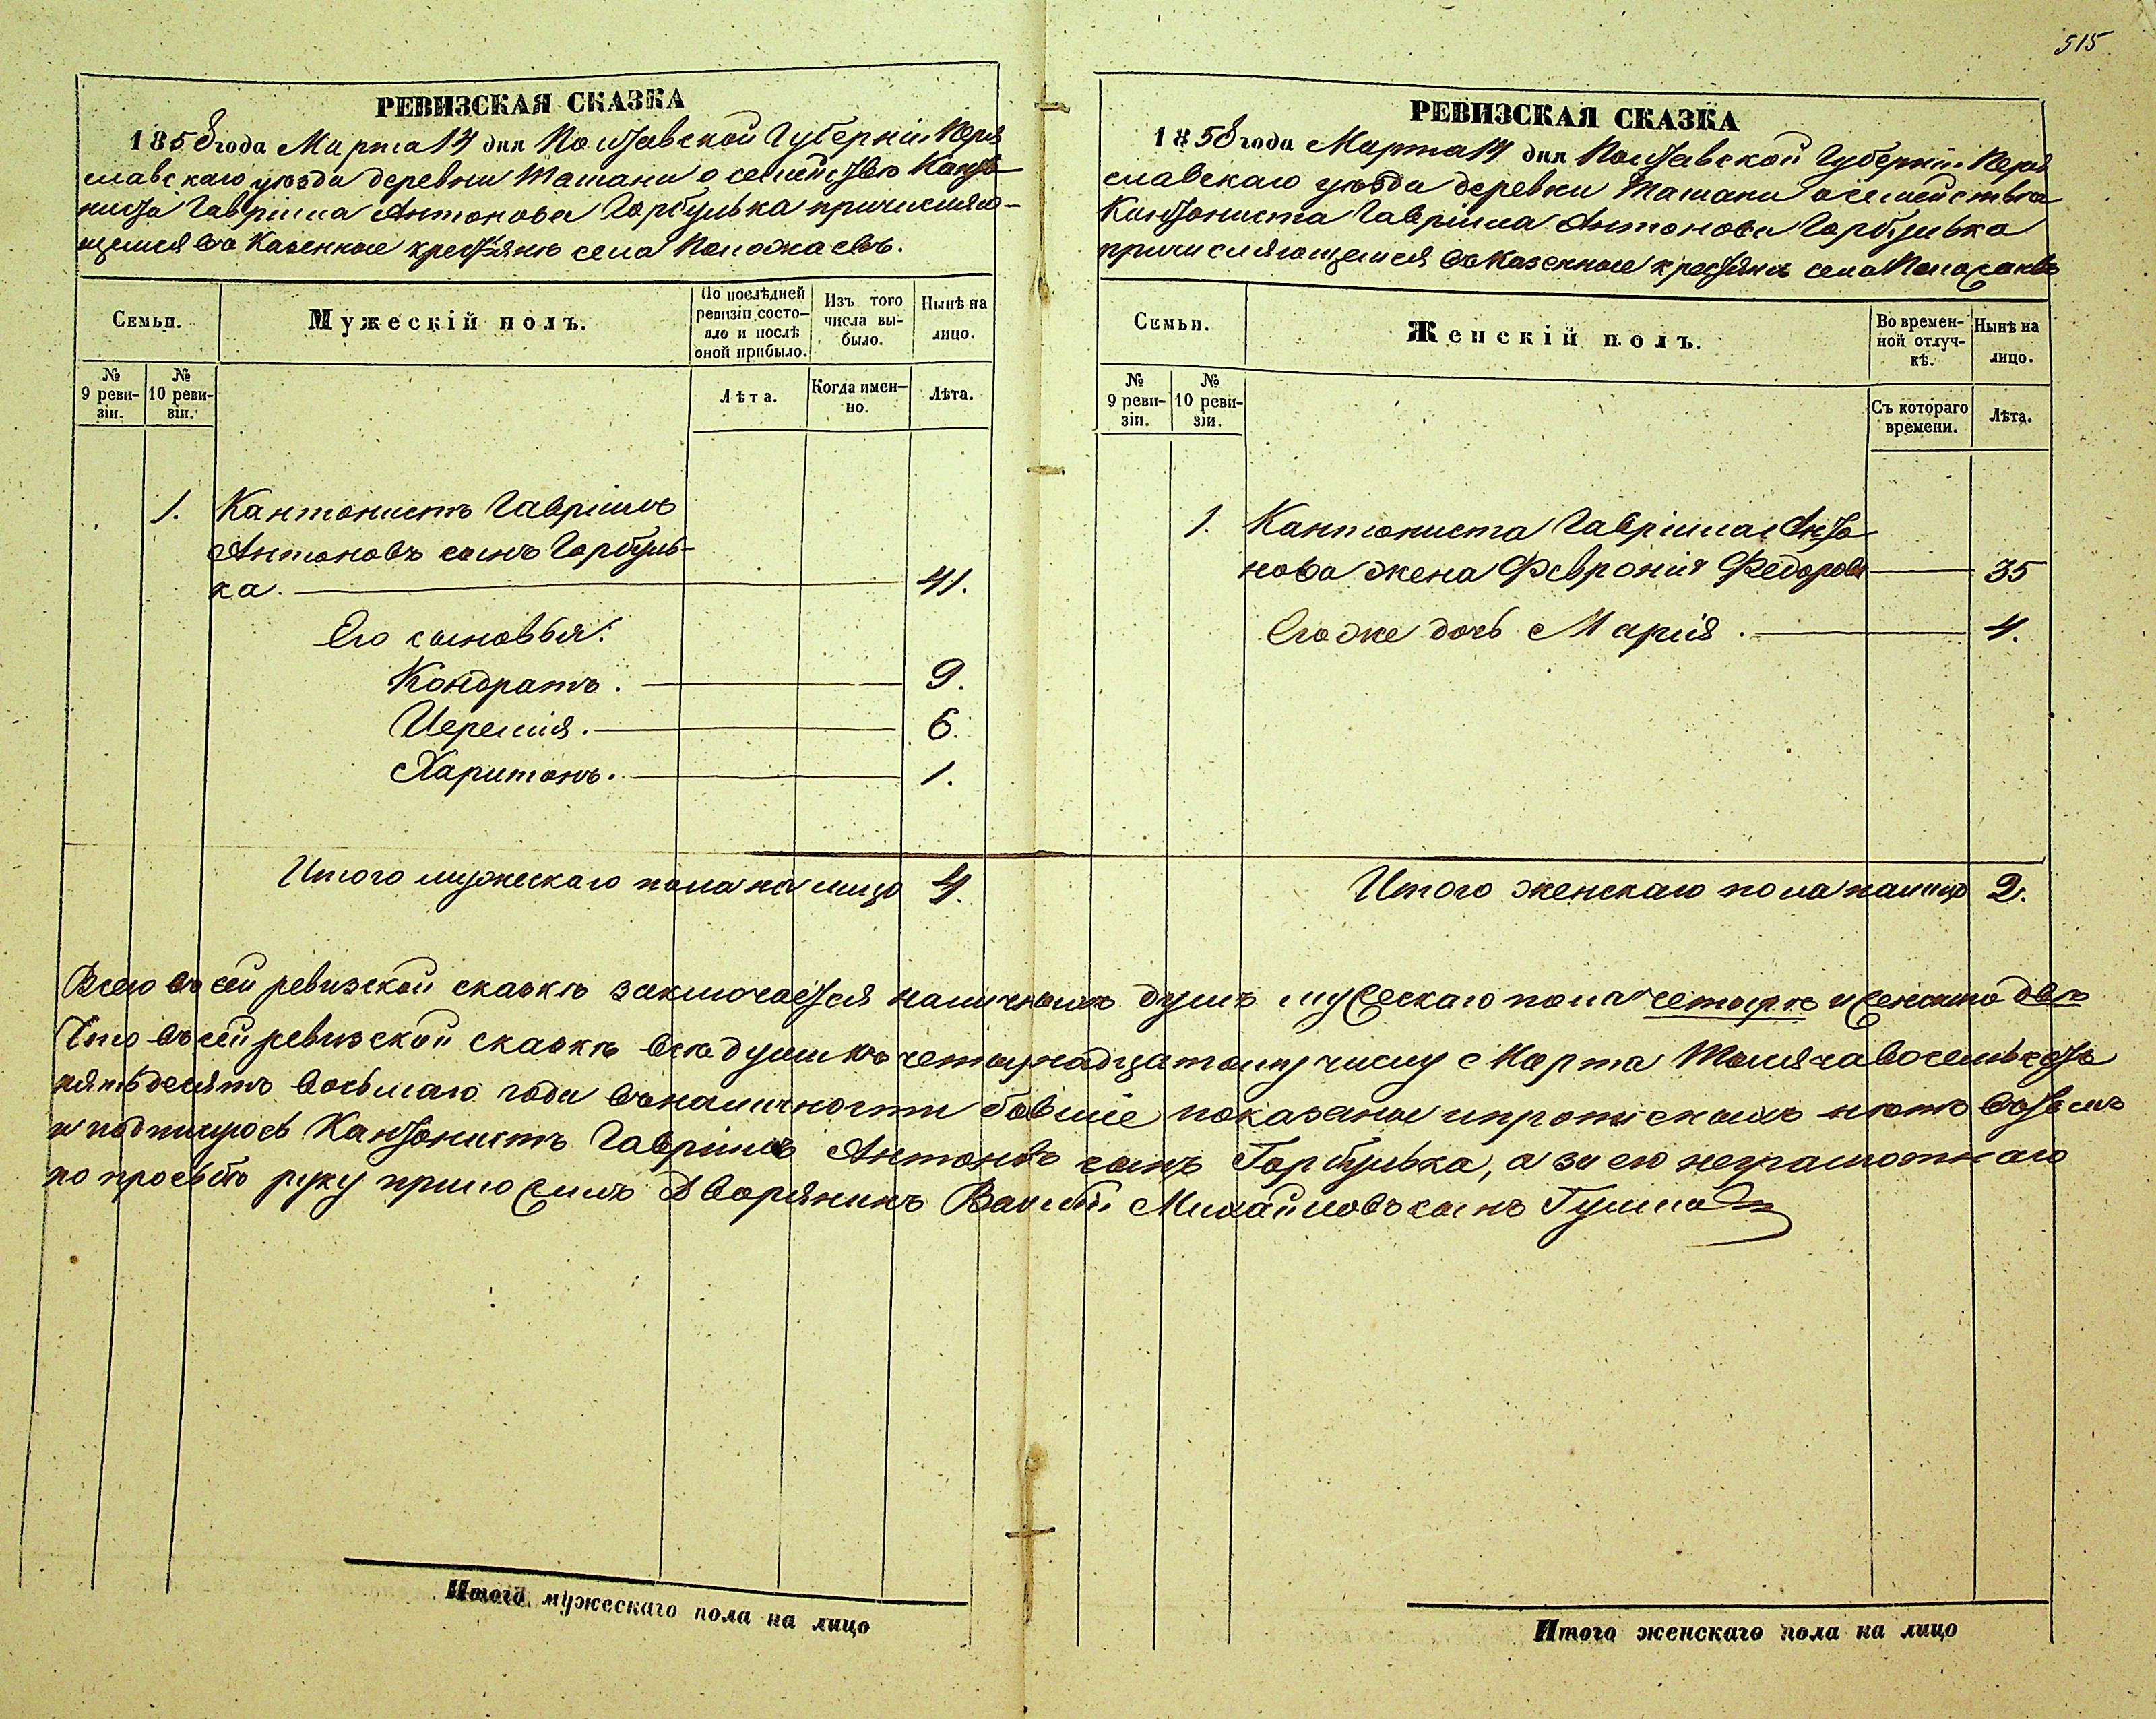 515
РЕВИЗСКАЯ СКАЗКА
1858 года Марта 14 дня Полтавской Губерніи Перея
славскаго уѣзда деревни Ташани о семействѣ Канто
ниста Гавріила Антонова Горбулька причисляю-
щемся въ Казенные крестьяне села Положаевъ.
Семьи.
Мужескій полъ.
По послѣдней ревизіи состо-
яло и послѣ оной прибыло.
Изъ того числа вы-
было.
Нынѣ на лицо.
№ 9 реви-
зіи.
№ 10 реви-
зіи.
Лѣта.
Когда имен-
но.
Лѣта.
1. Кантонистъ Гавріилъ
Антоновъ сынъ Горбуль-
ка. 41.
Его сыновья:
Кондратъ. 9.
Иеремія. 6.
Харитонъ. 1.
Итого мужескаго пола на лицо 4.
РЕВИЗСКАЯ СКАЗКА
1858 года Марта 14 дня Полтавской Губерніи Перея
славскаго уѣзда деревни Ташани о семействѣ
Кантониста Гавріила Антонова Горбулька
причисляющемся въ Казенные крестьяне села Положаевъ
Семьи.
Женскій полъ.
Во времен-
ной отлуч-
кѣ.
Нынѣ на лицо.
№ 9 реви-
зіи.
№ 10 реви-
зіи.
Съ котораго времени.
Лѣта.
1. Кантониста Гавріила Анто
нова жена Февронія Федорова 35
Его же дочь Марія. 4.
Итого женскаго пола налицо 2.
Всего въ сей ревизской сказкѣ заключается наличныхъ душъ мужескаго пола четыре и женскаго двѣ
Что въ сей ревизской сказкѣ всѣ души къ четырнадцатому числу Марта Тысяча восемьсотъ
пятьдесятъ восьмаго года въ наличности бывшіе показаны и прописныхъ нѣтъ въ томъ
и подпишусь Кантонистъ Гавріилъ Антоновъ сынъ Горбулька, а за его неграмотнаго
по просьбѣ руку приложилъ Дворянинъ Василій Михайловъ сынъ
Итого мужескаго пола на лицо
Итого женскаго пола на лицо